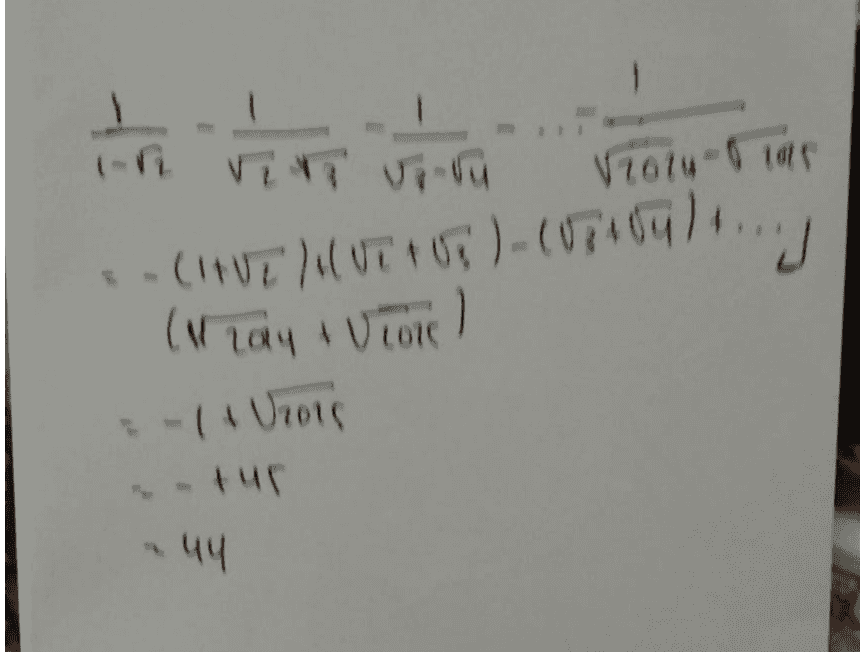 1/(1-√2) - 1/(√2-√3) - 1/(√3-√4) - ... - 1/(√2024-√2025)
= -(1+√2)+(√2+√3)-(√3+√4)+...
(√2024+√2025)
= -1+√2025
= -+45
= 44